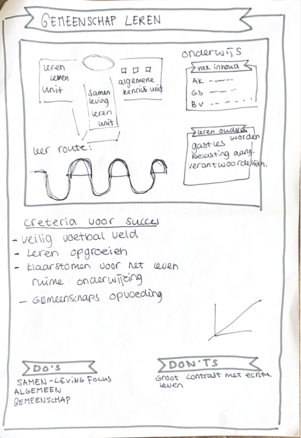 GEMEENSCHAP LEREN
onderwijs
vak inhoud
AK
GS
BV
leren leven unit
samen leving leren unit
algemene kennis unit
leer route:
leren ouders
gastles worden
belasting aang.
verantwoordelijk.
Creteria voor succes
- veilig voetbal veld
- Leren opgroeien
- klaarstomen voor het leven
ruime onderwijzing
- GEmeenschaps opvoeding
DO'S
SAMEN-LEVING FOCUS
ALGEMEEN
GEMEENSCHAP
DON'TS
Groot contrast met echte
leven